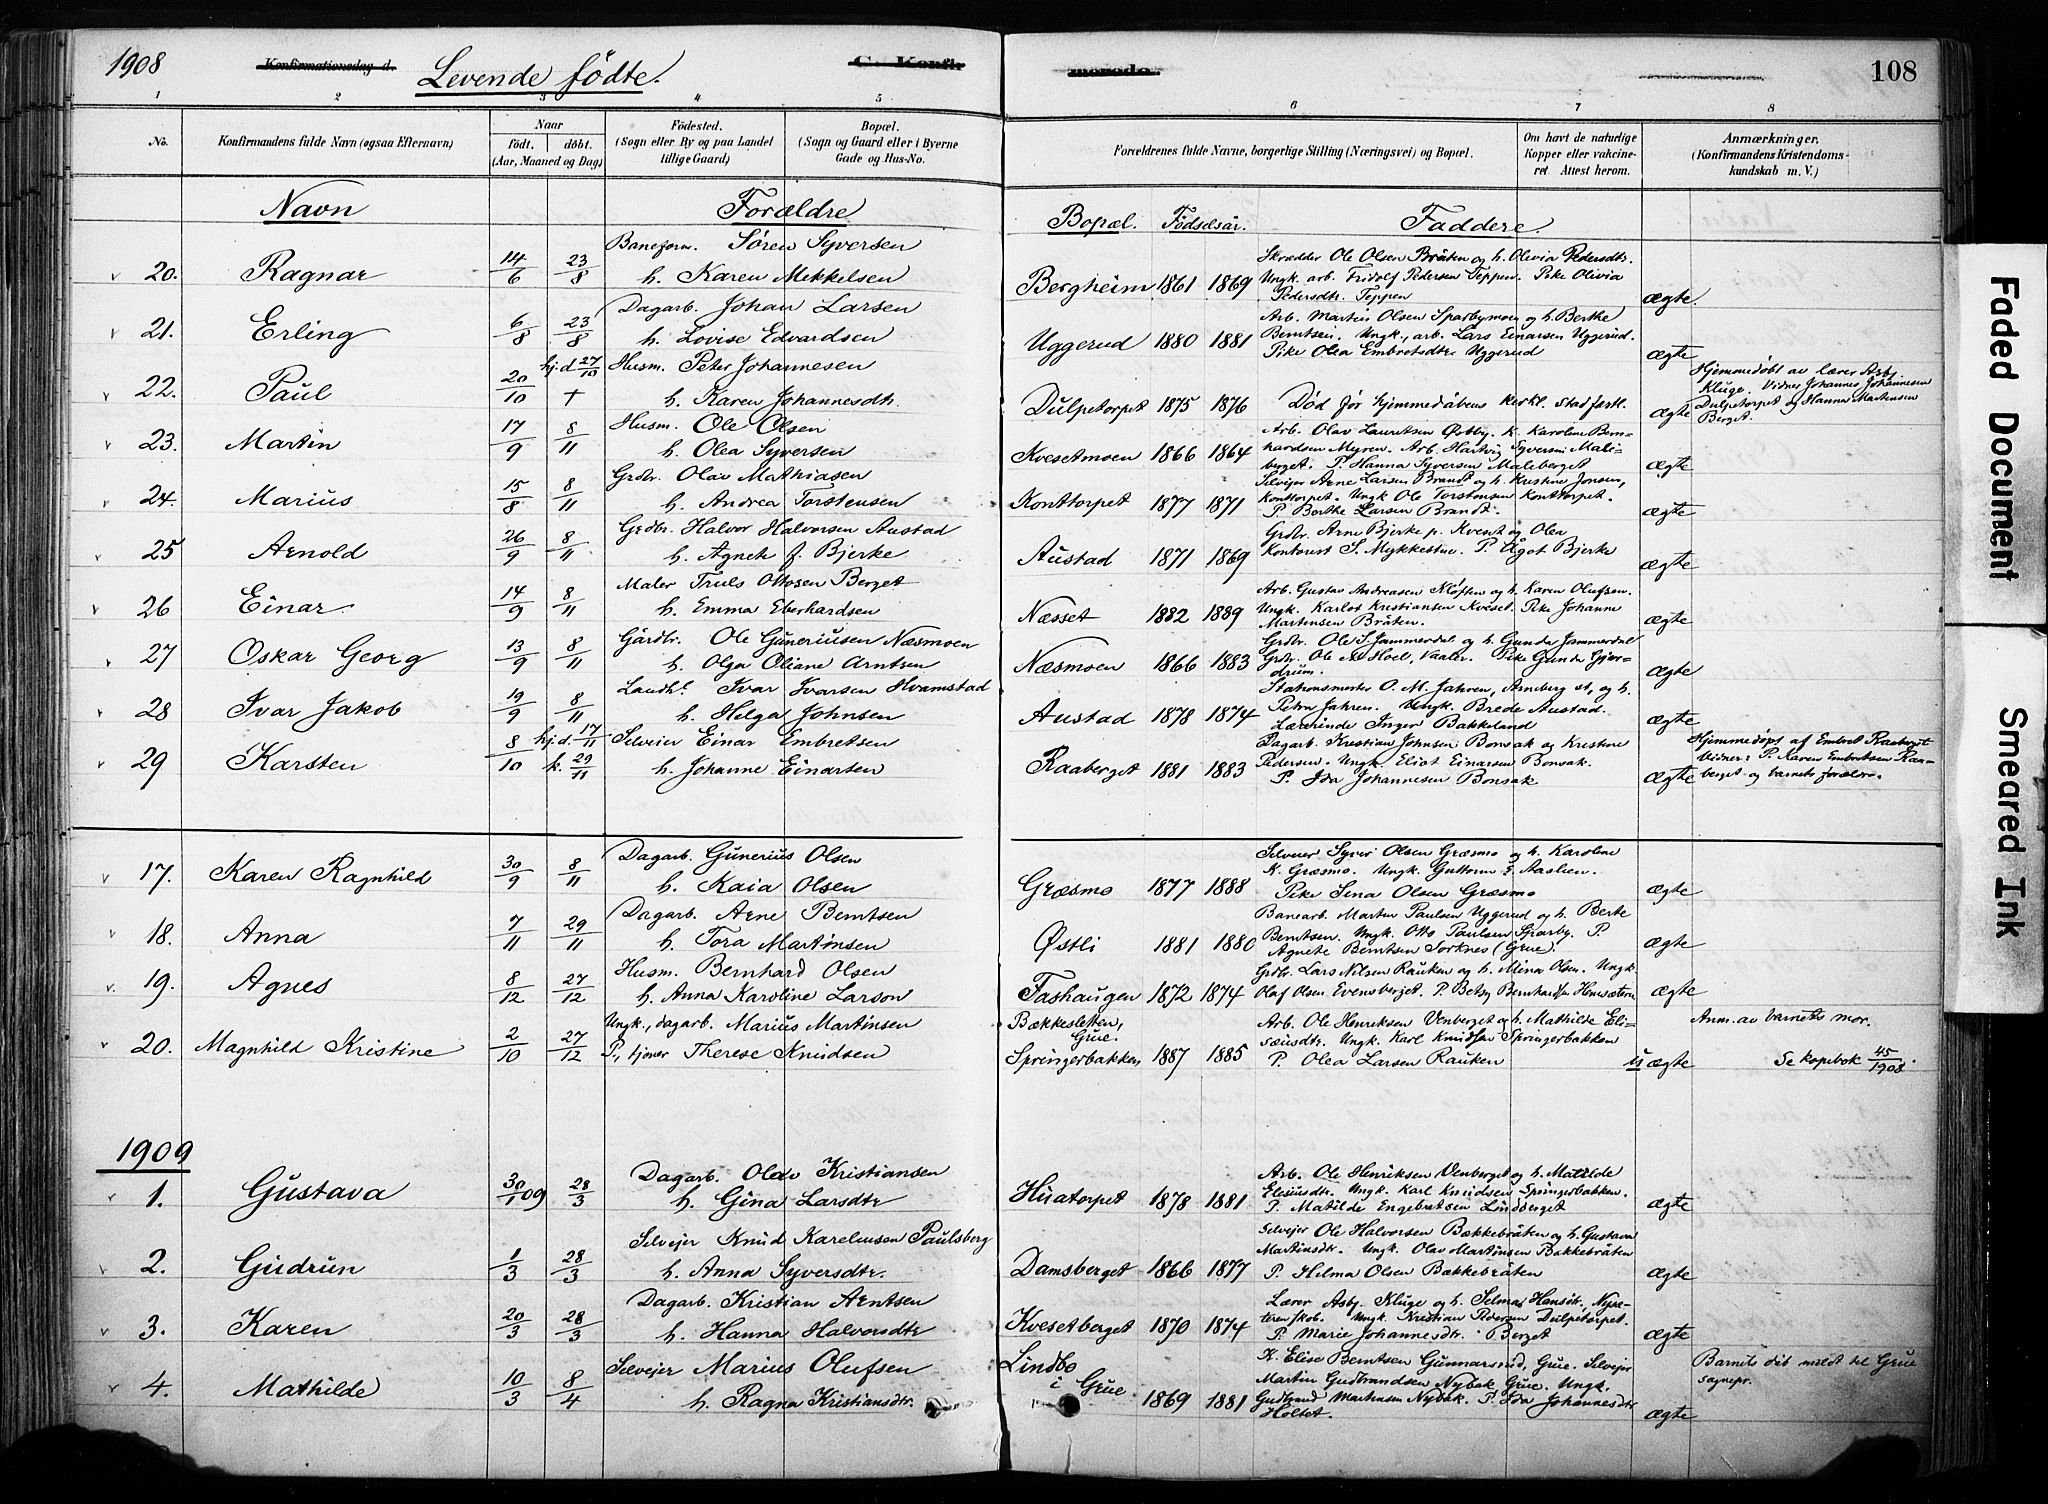 1908 Konfirmationsdag d. Levende fødte. C. Konfir merede. 108
1 2 3 4 5 6 7 8
No. Konfirmandens fulde Navn (ogsaa Efternavn) Naar født. døbt. (Aar, Maaned og Dag) Fødested. (Sogn eller By og paa Landet tillige Gaard) Bopæl. (Sogn og Gaard eller i Byerne Gade og Hus-No. Forældrenes fulde Navne, borgerlige Stilling (Næringsvei) og Bopæl. Om havt de naturlige Kopper eller vakcineret. Attest herom. Anmærkninger. (Konfirmandens Kristendomskundskab m. V.)
Navn Forældre Bopæl. Fødselsår. Faddere.
20. Ragnar 14/6 23/8 Baneform. Søren Syversen
h. Karen Mekkelsen Bergheim 1861 1869
Skrædder Ole Olsen Bråten og h. Olivia Pedersdtr.
Ungk. arb. Fridolf Pedersen Teppen. Pike Olivia
Pedersdtr. Teppen ægte.
21. Erling 6/8 23/8 Dagarb. Johan Larsen
h. Lovise Edvardsen Uggerud 1880 1881
Arb. Martin Olsen Sparbymoen og h. Berthe
Berntsen. Ungk., arb. Lars Einarsen Uggerud.
Pike Olea Embretsdtr. Uggerud ægte
22. Paul 20/10 hj.d. 27/10 † Husm. Peter Johannesen
h. Karen Johannesdtr. Dulpetorpet 1875 1876
Død før hjemmedåbens kirkl. stadfæstl. ægte
Hjemmedøbt av lærer Asbj.
Kluge. Vidner Johannes Johannesen
Dulpetorpet og Hanna Martinsen
Berget.
23. Martin 17/9 8/11 Husm. Ole Olsen
h. Olea Syversen Kvesetmoen 1866 1864
Arb. Olav Lauritsen Østby. K. Karoline Bern-
hardsen Myren. Arb. Hartvig Syversen Mali-
berget. P. Hanna Syversen Maleberget ægte
24. Marius 15/8 8/11 Grdbr. Olav Mathiasen
h. Andrea Torstensen Konttorpet 1877 1871
Selvejer Arne Larsen Brandt og h. Kristine Jonsen,
Konttorpet. Ungk Ole Torstensen Konttorpet.
P. Berthe Larsen Brandt. ægte
25 Arnold 26/9 8/11 Grdbr. Halvor Halvorsen Austad
h. Agnete f. Bjerke Austad 1871 1869
Grdbr. Arne Bjerke p. Kveset og Olea
Kontorist S. Mykkestue. P. Ågot Bjerke ægte
26 Einar 14/9 8/11 Maler Truls Ottosen Berget
h. Emma Eberhardsen Næsset 1882 1889
Arb. Gustav Andreasen Kløften og h. Karen Olufsen.
Ungk. Karlot Kristiansen Kveset. Pike Johanne
Martinsen Bråten. ægte
27 Oskar Georg 13/9 8/11 Gårdbr. Ole Guneriusen Næsmoen
h. Olga Oliane Arntsen Næsmoen 1866 1883
Grdbr. Ole S. Jammerdal og h. Gunda Jammerdal
Grdbr. Ole A. Hoel, Vaaler. Pike Gunda Gjer-
drum. ægte
28 Ivar Jakob 19/9 8/11 Landh. Ivar Ivarsen Hvamstad
h. Helga Johnsen Austad 1878 1874
Stationsmester O. M. Jahren, Arneberg st., og h.
Petra Jahren. Ungk. Brede Austad.
Lærerinde Inger Bakkeland ægte
29 Karsten 8/10 hj.d. 17/11 k. 29/11 Selvejer Einar Embretsen
h. Johanne Einarsen Raaberget 1881 1883
Dagarb. Kristian Johnsen Bonsak og Kristine
Pedersen. Ungk. Eliot Einarsen Bonsak.
P. Ida Johannesen Bonsak ægte
Hjemmedøpt af Embret Raaberget
Vidner: P. Karen Embretsen Raa-
berget og barnets forældre.
17. Karen Ragnhild 30/9 8/11 Dagarb. Gunerius Olsen
h. Kaia Olsen Græsmo 1877 1888
Selveier Syver Olsen Græsmo og h. Karoline
K. Græsmo. Ungk. Guttorm E. Aaslien.
Pike Sina Olsen Græsmo ægte
18. Anna 7/11 29/11 Dagarb. Arne Berntsen
h. Tora Martinsen Østli 1881 1880
Banearb. Martin Paulsen Uggerud og h. Berte
Berntsen. Ungk. Otto Paulsen Sparby. P.
Agnete Berntsen Sorknes (Grue). ægte
19. Agnes 8/12 27/12 Husm. Bernhard Olsen
h. Anna Karoline Larson Fashaugen 1872 1874
Grdbr. Lars Nilsen Rauken og h. Mina Olsen. Ungk.
Olaf Olsen Evensberget. P. Betsy Bernhardsen Hemsætern ægte
20. Magnhild Kristine 2/10 27/12 Ungk., dagarb. Marius Martinsen
P., tjener Therese Knudsen
Bækkesletten, Grue.
Springerbakken 1887 1885
Arb. Ole Henriksen Venberget og h. Mathilde Eli-
sæusdtr. Ungk. Karl Knudsen Springerbakken
P. Olea Larsen Rauken uægte
Anm. av barnets mor.
Se kopibok 45/1908.
1909
1. Gustava 30/1 09 28/3 Dagarb. Olav Kristiansen
h. Gina Larsdtr Huatorpet 1878 1881
Arb. Ole Henriksen Venberget og h. Matilde
Eliseusdtr. Ungk. Karl Knudsen Springerbakken.
P. Matilde Engebretsen Lindberget ægte
2. Gudrun 1/3 28/3 Selvejer Knud Karelinsen Paulsberg
h. Anna Syversdtr. Damsberget 1866 1877
Selvejer Ole Halvorsen Bækkebråten og h. Gustava
Martinsdtr. Ungk. Olav Martinsen Bakkebråten
P. Helma Olsen Bækkebråten ægte
3. Karen 20/3 28/3 Dagarb. Kristian Arntsen
h. Hanna Halvorsdtr Kvesetberget 1870 1874
Lærer Asbj. Kluge og h. Selma Hansdtr., Nysæ-
teren skole. Ungk. Kristian Pedersen Dulpetorpet.
P. Marie Johannesdtr. Berget ægte
4. Mathilde 10/3 8/4 Selvejer Marius Olufsen
h. Ragna Kristiansdtr. Lindbo i Grue 1869 1881
K. Elise Berntsen Gunnarsrud, Grue. Selvejer
Martin Gudbrandsen Nybak Grue. Ungk.
Gudbrand Martinsen Nybak. P. Ida Johannesdtr
Holtet. ægte
Barnets dåb meldt til Grue
sognepr.
Faded Document
Smeared Ink